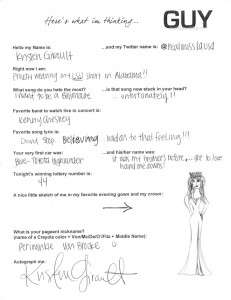 Here's what im thinking...
GUY
Hello my Name is: ...and my Twitter name is:
Kristen Girault @realmissLAusa
Right now I am:
Proudly wearing my LSU shirt in Alabama!!
What song do you hate the most? ...is that song now stuck in your head?
I want to be a Billionaire ...unfortunately!!
Favorite band to watch live in concert is:
Kenny Chesney
Favorite song lyric is:
Don't Stop Believing... hold on to that feeling!!!
Your very first car was: ...and his/her name was:
Blue - Toyota Highlander it was my brother's before... got to love
hand me downs!
Tonight's winning lottery number is:
44
A nice little sketch of me in my favorite evening gown and my crown:
What is your pageant nickname?
(name of a Crayola color + Von/Mc/De/O'/Fitz + Middle Name):
Periwinkle Von Brooke
Autograph me:
Kristen Girault